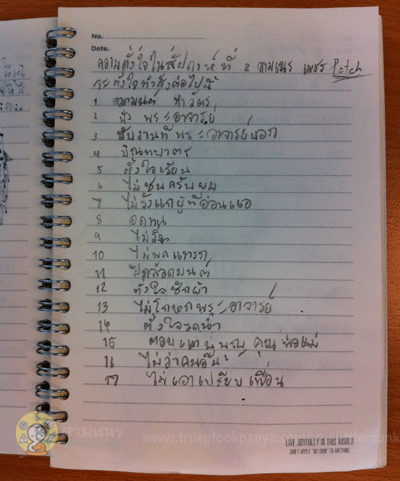 No.
Date.
ความตั้งใจในสัปดาห์ ที่ 2 สามเณร เพชร Petch
จะตั้งใจทำสิ่งต่อไปนี้
1 สวดมนต์ ทำวัตร
2 ฟัง พระอาจารย์
3 พระอาจารย์
4 บิณฑบาตร
5 ตั้งใจเรียน
6 ไม่ซนครับผม
7 ไม่รังแกผู้ที่อ่อนแอ
8 อดทน
9 ไม่
10 ไม่พูดแทรก
11 ฝึกสวดมนต์
12 ตั้งใจซักผ้า
13 ไม่โกหกพระอาจารย์
14 ตั้งใจรดน้ำ
15 ตอบแทนบุญ คุณ พ่อแม่
16 ไม่ว่าคนอื่น
17 ไม่เอาเปรียบเพื่อน
สามเณร
www.trueplookpanya.com
LIVE JOYFULLY IN THIS WORLD
DON'T APPLY "MY OWN" TO ANYTHING.